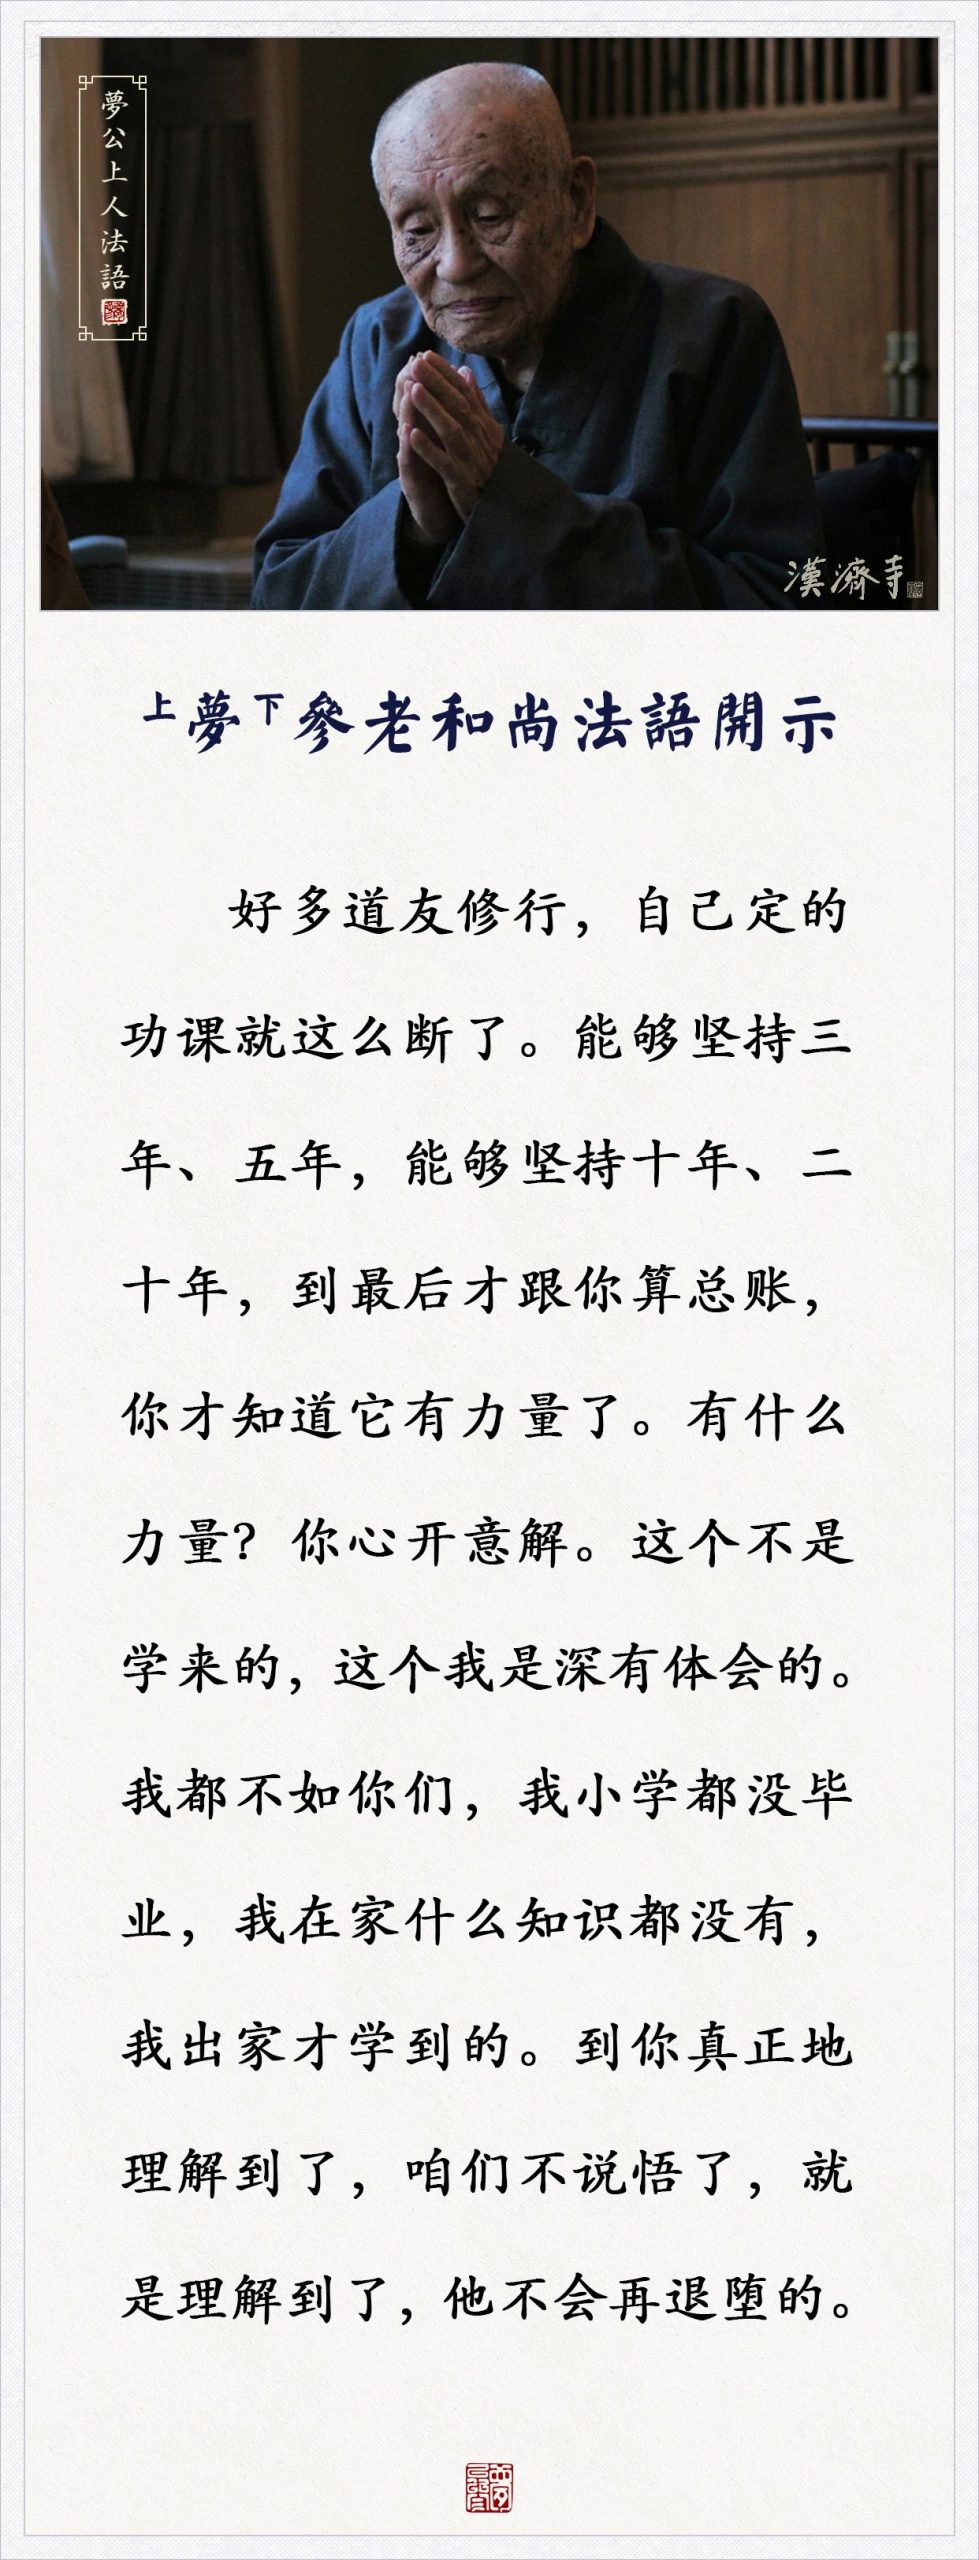 夢公上人法語
漢濟寺
上夢下參老和尚法語開示
好多道友修行，自己定的
功课就这么断了。能够坚持三
年、五年，能够坚持十年、二
十年，到最后才跟你算总账，
你才知道它有力量了。有什么
力量？你心开意解。这个不是
学来的，这个我是深有体会的。
我都不如你们，我小学都没毕
业，我在家什么知识都没有，
我出家才学到的。到你真正地
理解到了，咱们不说悟了，就
是理解到了，他不会再退堕的。